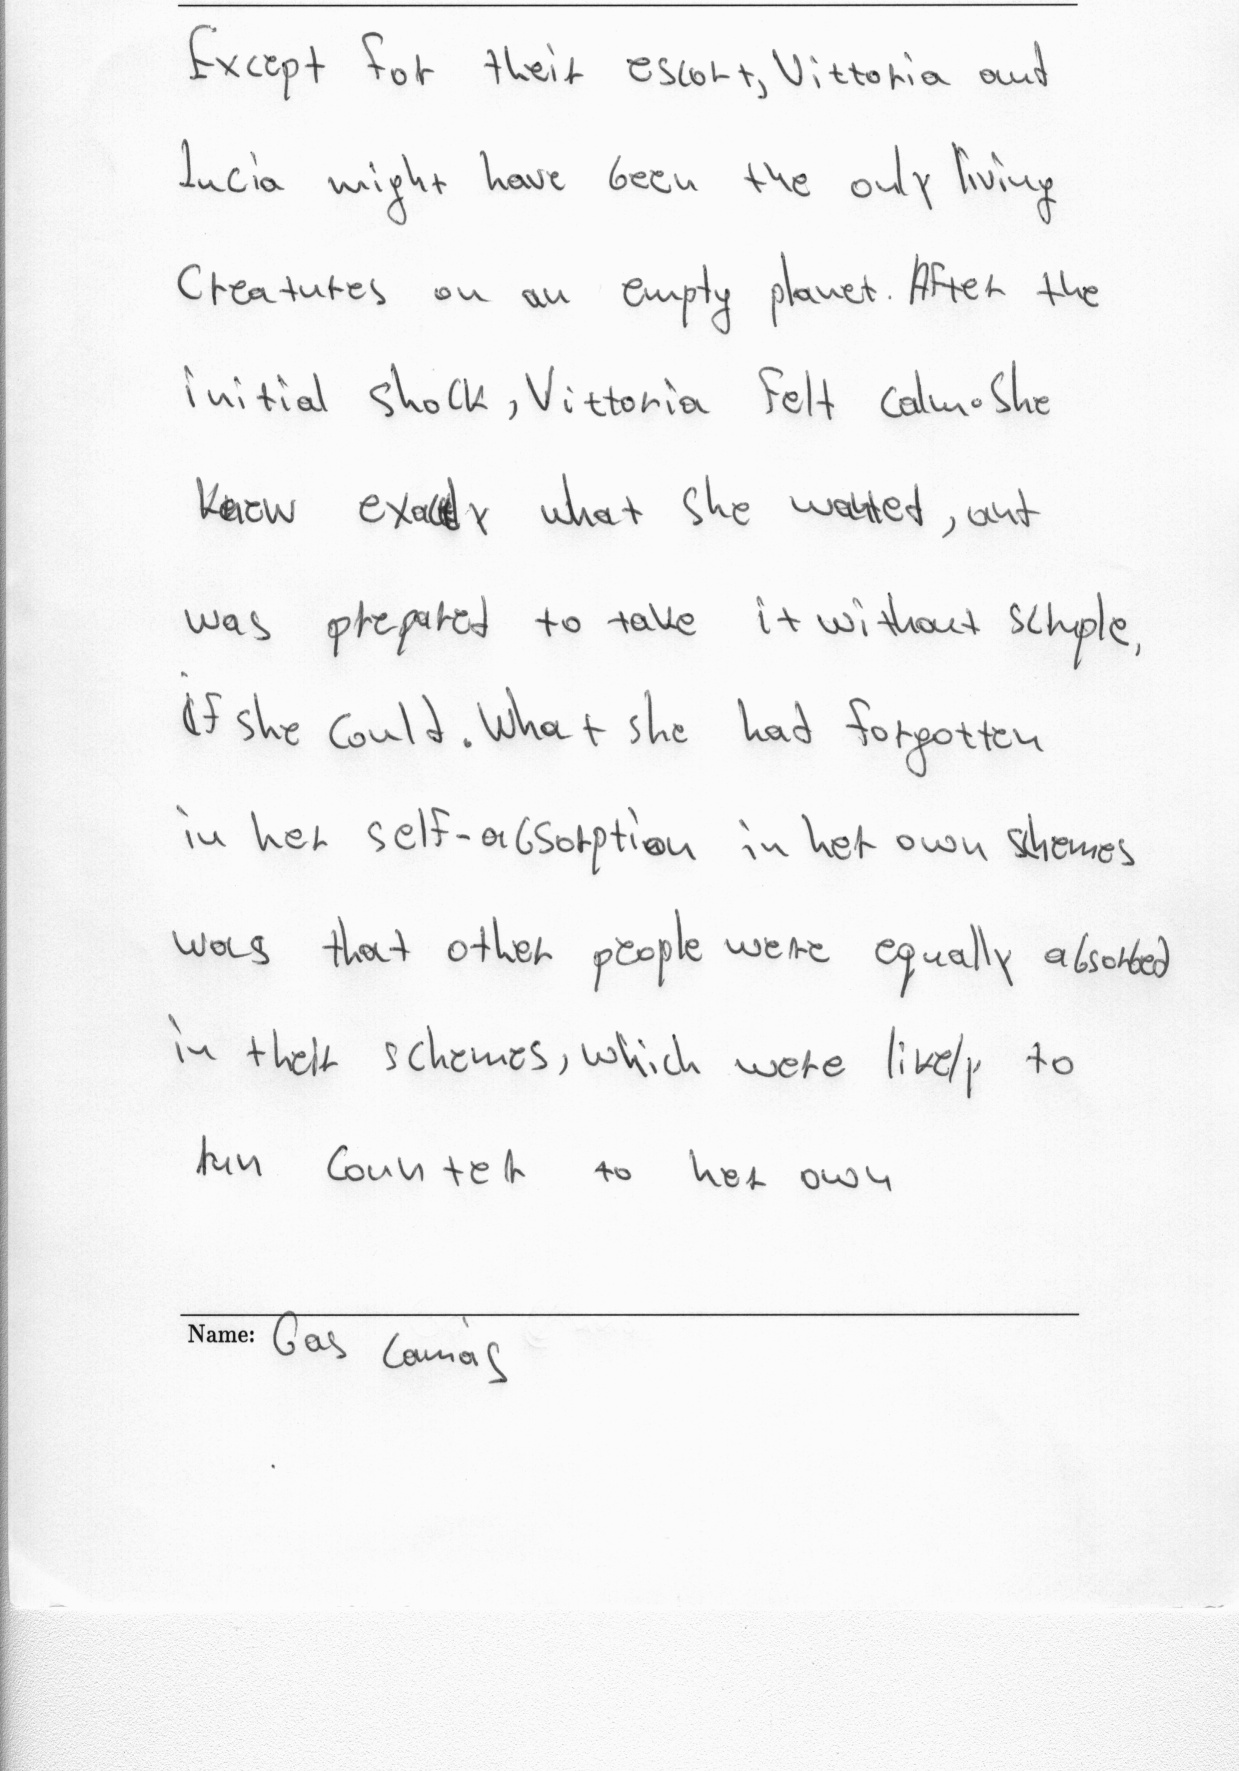 Except for their escort, Vittoria and
Lucia might have been the only living
Creatures on an empty planet. After the
initial shock, Vittoria felt calm. She
knew exactly what she wanted, and
was prepared to take it without scruple,
if she could. What she had forgotten
in her self-absorption in her own schemes
was that other people were equally absorbed
in their schemes, which were likely to
run counter to her own
Name: Gas